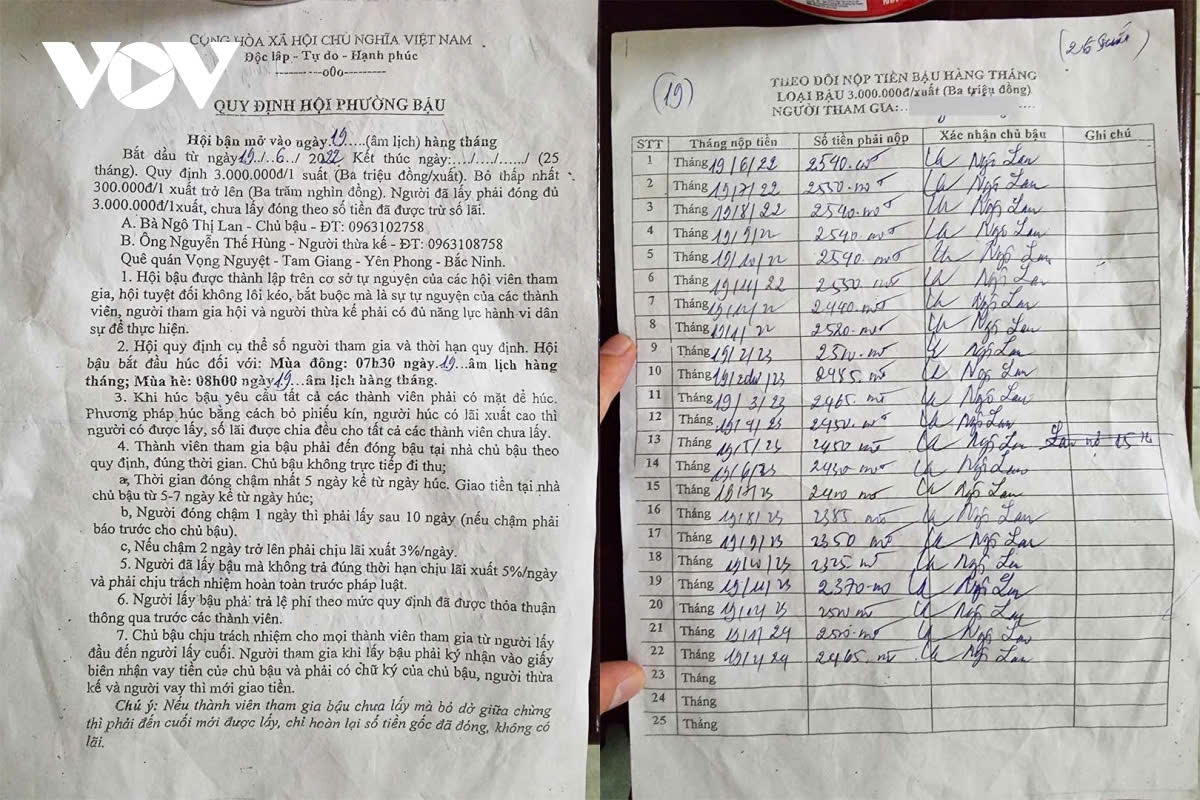 VOV
CỘNG HÒA XÃ HỘI CHỦ NGHĨA VIỆT NAM
Độc lập - Tự do - Hạnh phúc
---------o0o---------
QUY ĐỊNH HỘI PHƯỜNG BẬU
Hội bận mở vào ngày.19.....(âm lịch) hàng tháng
Bắt đầu từ ngày19../..6../ 2022 Kết thúc ngày:..../..../....../ (25
tháng). Quy định 3.000.000đ/1 suất (Ba triệu đồng/xuất). Bỏ thấp nhất
300.000đ/1 xuất trở lên (Ba trăm nghìn đồng). Người đã lấy phải đóng đủ
3.000.000đ/1xuất, chưa lấy đóng theo số tiền đã được trừ số lãi.
A. Bà Ngô Thị Lan - Chủ bậu - ĐT: 0963102758
B. Ông Nguyễn Thế Hùng - Người thừa kế - ĐT: 0963108758
Quê quán Vọng Nguyệt - Tam Giang - Yên Phong - Bắc Ninh.
1. Hội bậu được thành lập trên cơ sở tự nguyện của các hội viên tham
gia, hội tuyệt đối không lôi kéo, bắt buộc mà là sự tự nguyện của các thành
viên, người tham gia hội và người thừa kế phải có đủ năng lực hành vi dân
sự để thực hiện.
2. Hội quy định cụ thể số người tham gia và thời hạn quy định. Hội
bậu bắt đầu húc đối với: Mùa đông: 07h30 ngày.19...âm lịch hàng
tháng; Mùa hè: 08h00 ngày19....âm lịch hàng tháng.
3. Khi húc bậu yêu cầu tất cả các thành viên phải có mặt để húc.
Phương pháp húc bằng cách bỏ phiếu kín, người húc có lãi xuất cao thì
người có được lấy, số lãi được chia đều cho tất cả các thành viên chưa lấy.
4. Thành viên tham gia bậu phải đến đóng bậu tại nhà chủ bậu theo
quy định, đúng thời gian. Chủ bậu không trực tiếp đi thu;
a, Thời gian đóng chậm nhất 5 ngày kể từ ngày húc. Giao tiền tại nhà
chủ bậu từ 5-7 ngày kể từ ngày húc;
b, Người đóng chậm 1 ngày thì phải lấy sau 10 ngày (nếu chậm phải
báo trước cho chủ bậu).
c, Nếu chậm 2 ngày trở lên phải chịu lãi xuất 3%/ngày.
5. Người đã lấy bậu mà không trả đúng thời hạn chịu lãi xuất 5%/ngày
và phải chịu trách nhiệm hoàn toàn trước pháp luật.
6. Người lấy bậu phải trả lệ phí theo mức quy định đã được thỏa thuận
thông qua trước các thành viên.
7. Chủ bậu chịu trách nhiệm cho mọi thành viên tham gia từ người lấy
đầu đến người lấy cuối. Người tham gia khi lấy bậu phải ký nhận vào giấy
biên nhận vay tiền của chủ bậu và phải có chữ ký của chủ bậu, người thừa
kế và người vay thì mới giao tiền.
Chú ý: Nếu thành viên tham gia bậu chưa lấy mà bỏ dở giữa chừng
thì phải đến cuối mới được lấy, chỉ hoàn lại số tiền gốc đã đóng, không có
lãi.
(19)
THEO DÕI NỘP TIỀN BẬU HÀNG THÁNG
LOẠI BẬU 3.000.000đ/xuất (Ba triệu đồng)
NGƯỜI THAM GIA:
STT Tháng nộp tiền Số tiền phải nộp Xác nhận chủ bậu Ghi chú
1 Tháng 19/6/22 2540 Ngô Lan
2 Tháng 19/7/22 2550 Ngô Lan
3 Tháng 19/8/22 2540 Ngô Lan
4 Tháng 19/9/22 2540 Ngô Lan
5 Tháng 19/10/22 2540 Ngô Lan
6 Tháng 19/11/22 2550 Ngô Lan
7 Tháng 19/12/22 2440 Ngô Lan
8 Tháng 19/1/22 2580 Ngô Lan
9 Tháng 19/2/23 Ngô Lan
10 Tháng 2485 Ngô Lan
11 Tháng 19/3/23 2465 Ngô Lan
12 Tháng 19/4/23 2450 Ngô Lan
13 Tháng 19/5/23 2450 Ngô Lan
14 Tháng 19/6/23 2430 Ngô Lan
15 Tháng 19/7/23 2400 Ngô Lan
16 Tháng 19/8/23 2385 Ngô Lan
17 Tháng 19/9/23 2350 Ngô Lan
18 Tháng 19/10/23 2325 Ngô Lan
19 Tháng 19/11/23 2370 Ngô Lan
20 Tháng 19/12/23 Ngô Lan
21 Tháng 19/1/24 Ngô Lan
22 Tháng 19/2/24 2465 Ngô Lan
23 Tháng
24 Tháng
25 Tháng